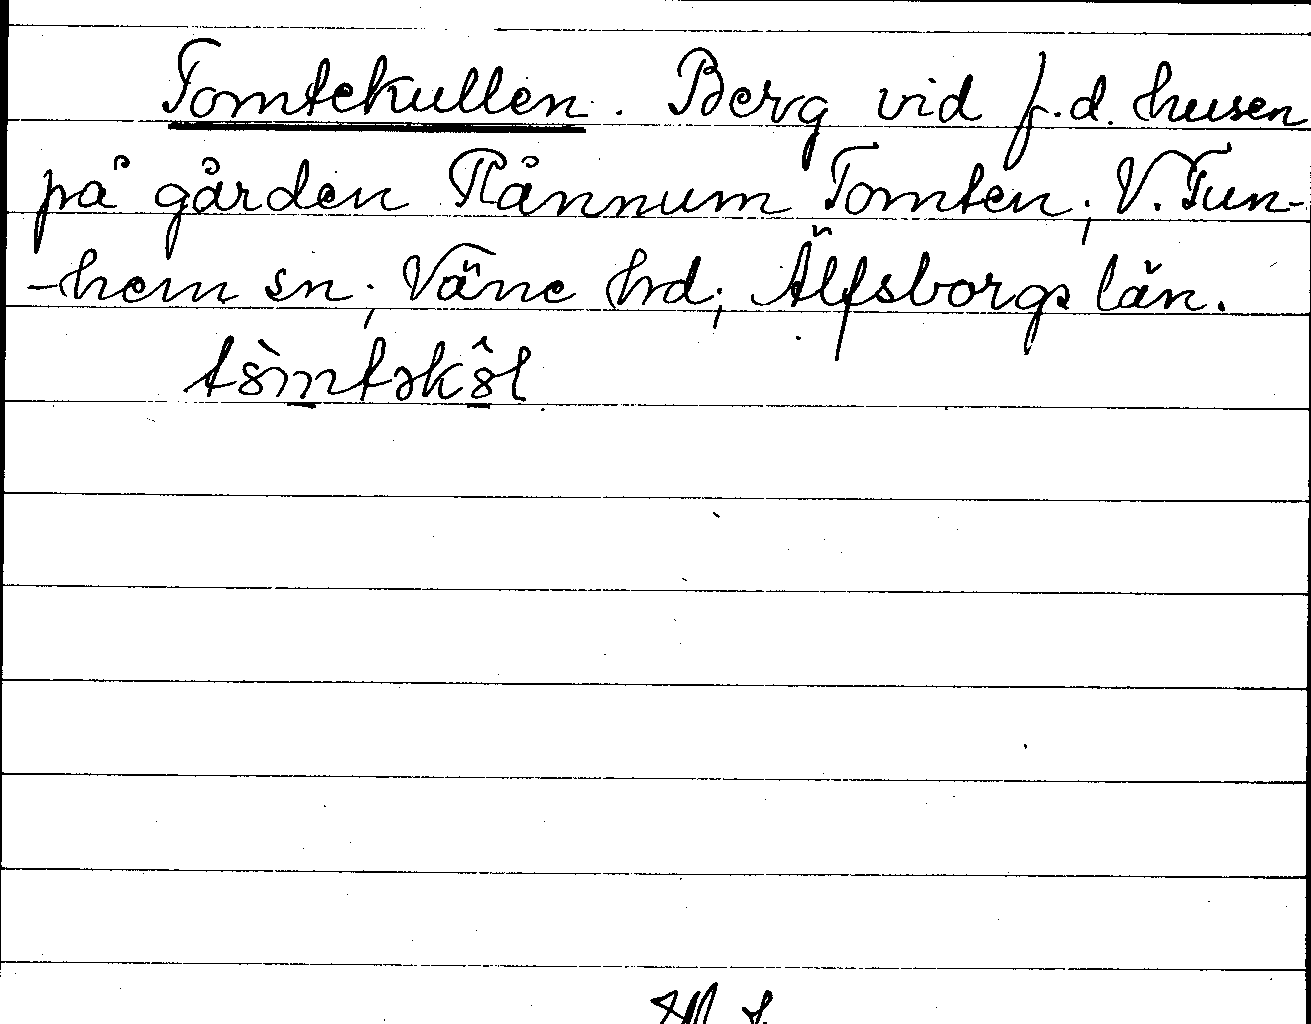 Tomtekullen. Berg vid f.d. husen
på gården Rånnum Tomten; V. Tun-
-hem sn; Väne hd; Älfsborgs län.